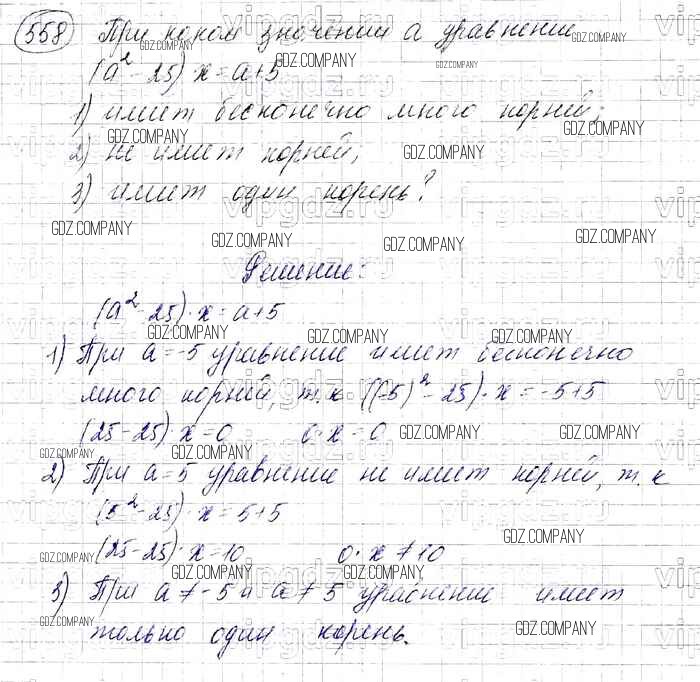 558 При каком значении а уравнение
(a² - 25)·x = a+5
1) имеет бесконечно много корней;
2) не имеет корней;
3) имеет один корень?
Решение:
(a² - 25)·x = a+5
1) При a = -5 уравнение имеет бесконечно
много корней, т.к ((-5)² - 25)·x = -5+5
(25-25)·x = 0 0·x = 0
2) При a = 5 уравнение не имеет корней, т.к
(5² - 25)·x = 5+5
(25-25)·x = 10 0·x ≠ 10
3) При a ≠ -5 и a ≠ 5 уравнение имеет
только один корень.
GDZ.COMPANY
vipgdz.ru